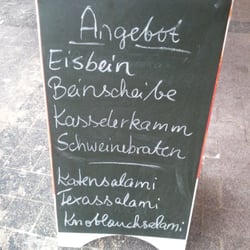 Angebot
Eisbein
Beinscheibe
Kasselerkamm
Schweinebraten
Katensalami
Texassalami
Knoblauchsalami